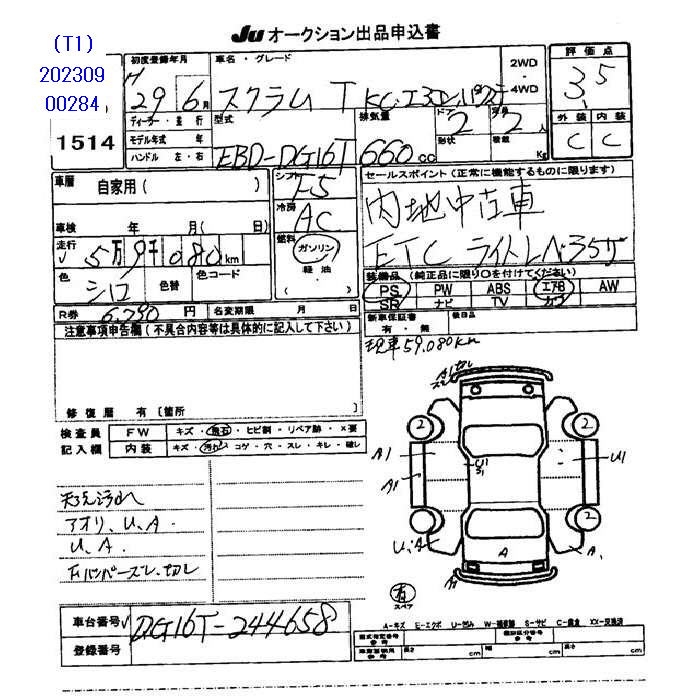 (T1)
202309
00284
1514
Ju オークション出品申込書
初度登録年月
H 29 6月
車名・グレード
スクラム T KCエアコンパワステ
2WD
・
4WD
評価点
3.5
外装 内装
C C
ディーラー・並行
モデル年式 年
ハンドル 左・右
型式
EBD-DG16T
排気量
660cc
ドア
2
形状
定員
2人
積載 Kg
車歴 自家用( )
車検 年 月( 日)
走行 5万9千080km
色 シロ 色替 色コード
R券 6,290円 名変期限 月 日
シフト
F5
冷房
AC
燃料
ガソリン
軽油
( )
セールスポイント(正常に機能するものに限ります)
内地中古車
ETC ライトレベ
装備品(純正品に限り○を付けてください)
PS PW ABS エアB AW
SR ナビ TV カワ
新車保証書 有・無 後日品
現車59.080km
注意事項申告欄(不具合内容等は具体的に記入して下さい)
修復歴 有〔箇所
検査員
記入欄
FW キズ・飛石・ヒビ割・リペア跡・×要
内装 キズ・汚れ・コゲ・穴・スレ・キレ・破レ
天张汚れ
アオリ、U、A.
U、A.
Fバンパースレ、切レ
A1 切レ
スレ
2 2
A1 U1
A1
2 2
U、A A A、
A1
有
スペア
A-キズ E-エクボ U-凹ミ W-補修跡 S-サビ C-腐食 XX-交換済
車台番号 DG16T-244658
登録番号
型式指定番号
参考
類別区分番号
参考
車庫証明用
参考
長さ cm 幅 cm 高さ cm